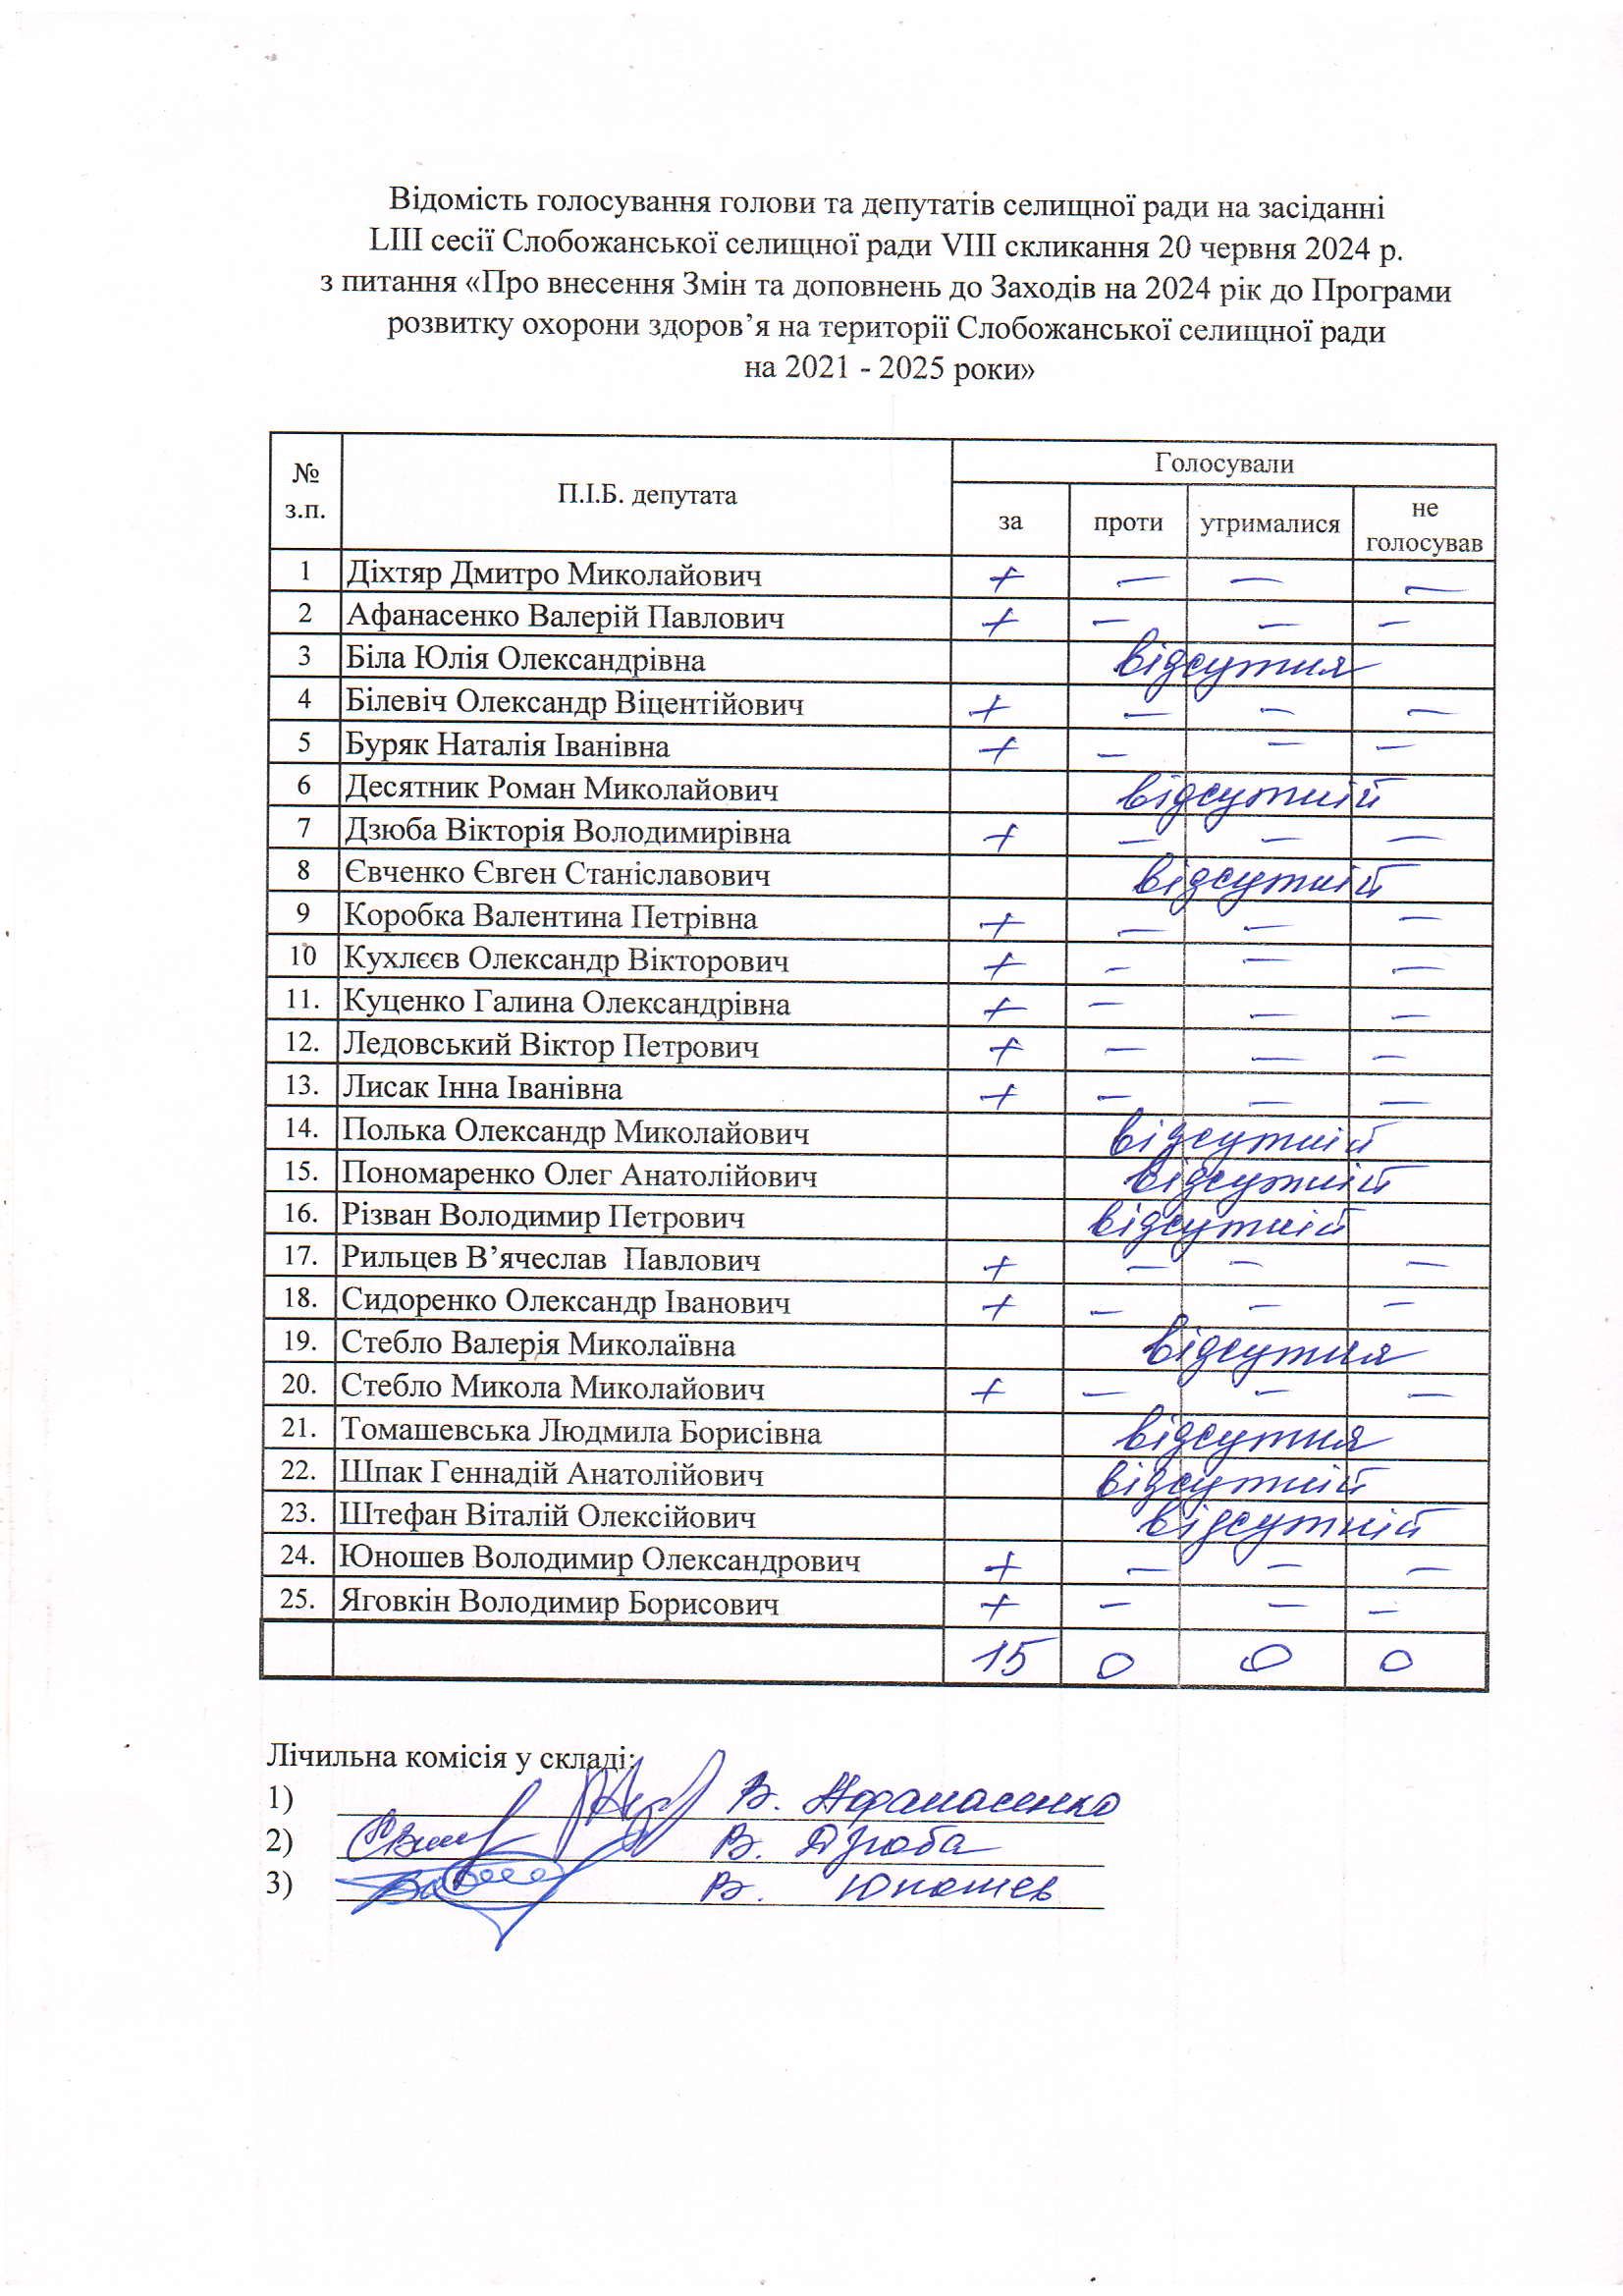 Відомість голосування голови та депутатів селищної ради на засіданні
LIII сесії Слобожанської селищної ради VIII скликання 20 червня 2024 р.
з питання «Про внесення Змін та доповнень до Заходів на 2024 рік до Програми
розвитку охорони здоров’я на території Слобожанської селищної ради
на 2021 - 2025 роки»
№ з.п. П.І.Б. депутата Голосували
за проти утрималися не голосував
1 Діхтяр Дмитро Миколайович + — — —
2 Афанасенко Валерій Павлович + — — —
3 Біла Юлія Олександрівна відсутня
4 Білевіч Олександр Віцентійович + — — —
5 Буряк Наталія Іванівна + — — —
6 Десятник Роман Миколайович відсутній
7 Дзюба Вікторія Володимирівна + — — —
8 Євченко Євген Станіславович відсутній
9 Коробка Валентина Петрівна + — — —
10 Кухлєєв Олександр Вікторович + — — —
11. Куценко Галина Олександрівна + — — —
12. Ледовський Віктор Петрович + — — —
13. Лисак Інна Іванівна + — — —
14. Полька Олександр Миколайович відсутній
15. Пономаренко Олег Анатолійович відсутній
16. Різван Володимир Петрович відсутній
17. Рильцев В’ячеслав Павлович + — — —
18. Сидоренко Олександр Іванович + — — —
19. Стебло Валерія Миколаївна відсутня
20. Стебло Микола Миколайович + — — —
21. Томашевська Людмила Борисівна відсутня
22. Шпак Геннадій Анатолійович відсутній
23. Штефан Віталій Олексійович відсутній
24. Юношев Володимир Олександрович + — — —
25. Яговкін Володимир Борисович + — — —
15 0 0 0
Лічильна комісія у складі:
1) В. Афанасенко
2) В. Дзюба
3) В. Юношев